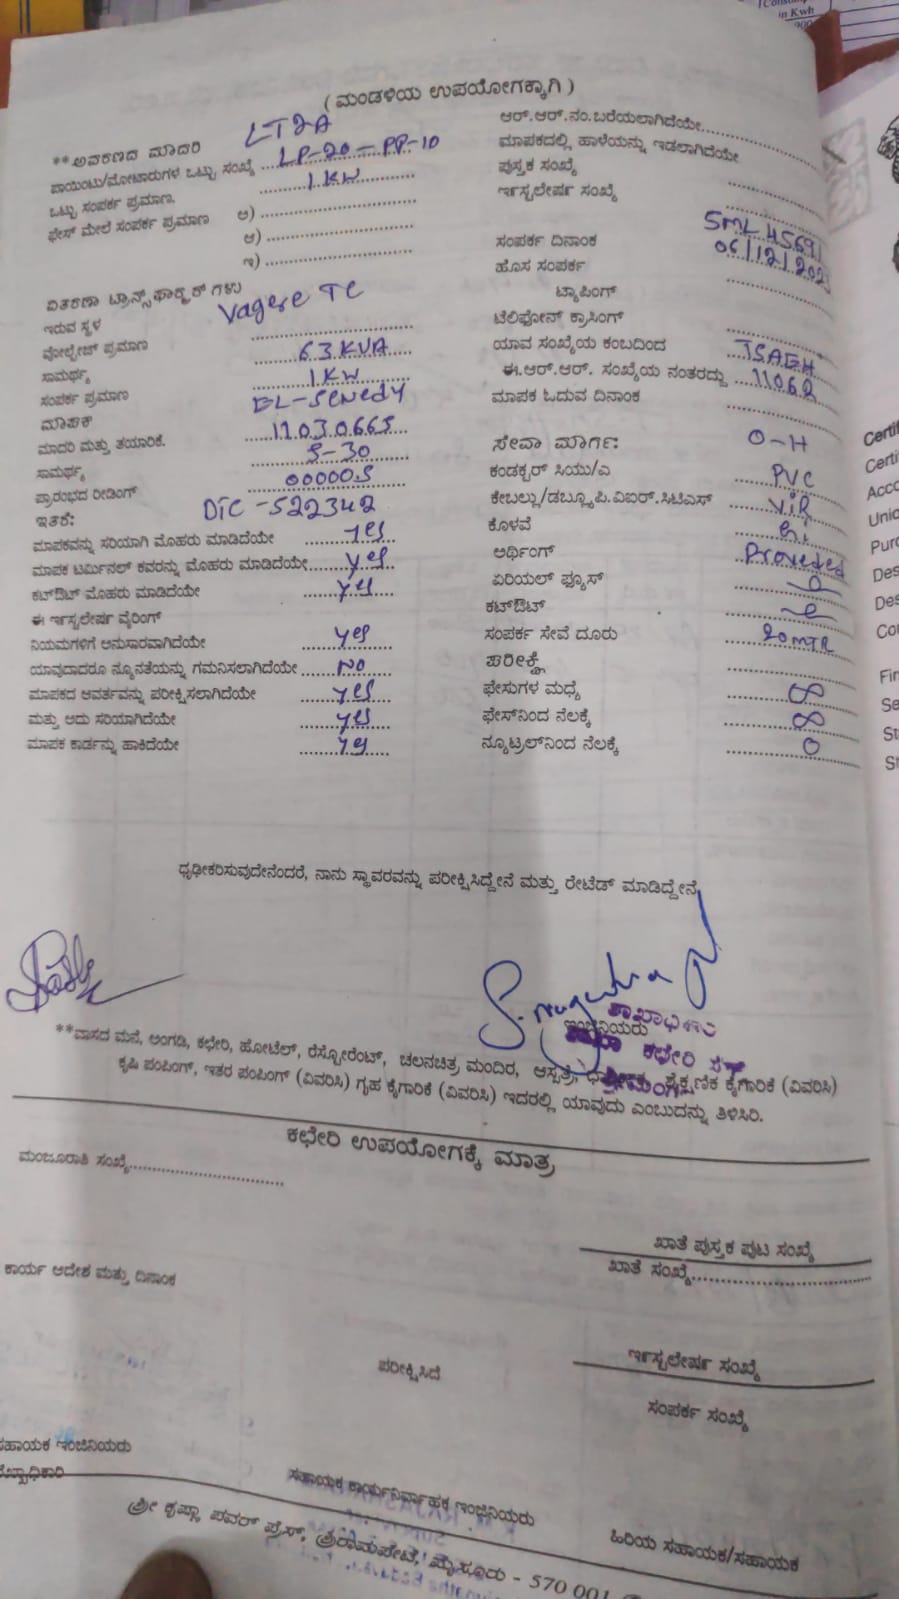 in Kwh
( ಮಂಡಳಿಯ ಉಪಯೋಗಕ್ಕಾಗಿ )
**ಆವರಣದ ಮಾದರಿ LT2A
ಪಾಯಿಂಟು/ಮೋಟಾರುಗಳ ಒಟ್ಟು ಸಂಖ್ಯೆ LP-20-PP-10
ಒಟ್ಟು ಸಂಪರ್ಕ ಪ್ರಮಾಣ. 1 KW
ಫೇಸ್ ಮೇಲೆ ಸಂಪರ್ಕ ಪ್ರಮಾಣ ಅ)
ಆ)
ಇ)
ವಿತರಣಾ ಟ್ರಾನ್ಸ್‌ಫಾರ್ಮರ್ ಗಳು
ಇರುವ ಸ್ಥಳ Vagere TC
ವೋಲ್ಟೇಜ್ ಪ್ರಮಾಣ
ಸಾಮರ್ಥ್ಯ 63 KVA
ಸಂಪರ್ಕ ಪ್ರಮಾಣ 1 KW
ಮಾಪಕ
ಮಾದರಿ ಮತ್ತು ತಯಾರಿಕೆ. 11030665
ಸಾಮರ್ಥ್ಯ 5-30
ಪ್ರಾರಂಭದ ರೀಡಿಂಗ್ 000005
ಇತರೆ: DTC-522342
ಮಾಪಕವನ್ನು ಸರಿಯಾಗಿ ಮೊಹರು ಮಾಡಿದೆಯೇ yes
ಮಾಪಕ ಟರ್ಮಿನಲ್ ಕವರನ್ನು ಮೊಹರು ಮಾಡಿದೆಯೇ yes
ಕಟ್‌ಔಟ್ ಮೊಹರು ಮಾಡಿದೆಯೇ yes
ಈ ಇನ್ಸ್ಟಲೇಷನ್ ವೈರಿಂಗ್
ನಿಯಮಗಳಿಗೆ ಅನುಸಾರವಾಗಿದೆಯೇ yes
ಯಾವುದಾದರೂ ನ್ಯೂನತೆಯನ್ನು ಗಮನಿಸಲಾಗಿದೆಯೇ NO
ಮಾಪಕದ ಆವರ್ತವನ್ನು ಪರೀಕ್ಷಿಸಲಾಗಿದೆಯೇ yes
ಮತ್ತು ಅದು ಸರಿಯಾಗಿದೆಯೇ yes
ಮಾಪಕ ಕಾರ್ಡನ್ನು ಹಾಕಿದೆಯೇ yes
ಆರ್.ಆರ್.ನಂ.ಬರೆಯಲಾಗಿದೆಯೇ
ಮಾಪಕದಲ್ಲಿ ಹಾಳೆಯನ್ನು ಇಡಲಾಗಿದೆಯೇ
ಪುಸ್ತಕ ಸಂಖ್ಯೆ
ಇನ್ಸ್ಟಲೇಷನ್ ಸಂಖ್ಯೆ
SML 45691
ಸಂಪರ್ಕ ದಿನಾಂಕ 06/12/202
ಹೊಸ ಸಂಪರ್ಕ
ಟ್ಯಾಪಿಂಗ್
ಟೆಲಿಫೋನ್ ಕ್ರಾಸಿಂಗ್
ಯಾವ ಸಂಖ್ಯೆಯ ಕಂಬದಿಂದ
ಈ.ಆರ್.ಆರ್. ಸಂಖ್ಯೆಯ ನಂತರದ್ದು 11062
ಮಾಪಕ ಓದುವ ದಿನಾಂಕ
ಸೇವಾ ಮಾರ್ಗ: O-H
ಕಂಡಕ್ಟರ್ ಸಿಯು/ಎ PVC
ಕೇಬಲ್ಲು/ಡಬ್ಲ್ಯೂ.ಪಿ.ವಿಐರ್.ಸಿಟಿಎಸ್ ViR
ಕೊಳವೆ
ಅರ್ಥಿಂಗ್ Proveded
ಏರಿಯಲ್ ಫ್ಯೂಸ್
ಕಟ್‌ಔಟ್
ಸಂಪರ್ಕ ಸೇವೆ ದೂರು 20 MTR
ಪರೀಕ್ಷೆ
ಫೇಸುಗಳ ಮಧ್ಯೆ ∞
ಫೇಸ್‌ನಿಂದ ನೆಲಕ್ಕೆ ∞
ನ್ಯೂಟ್ರಲ್‌ನಿಂದ ನೆಲಕ್ಕೆ 0
ಧೃಢೀಕರಿಸುವುದೇನೆಂದರೆ, ನಾನು ಸ್ಥಾವರವನ್ನು ಪರೀಕ್ಷಿಸಿದ್ದೇನೆ ಮತ್ತು ರೇಟೆಡ್ ಮಾಡಿದ್ದೇನೆ
ಇಂಜಿನಿಯರು
**ವಾಸದ ಮನೆ, ಅಂಗಡಿ, ಕಛೇರಿ, ಹೋಟೆಲ್, ರೆಸ್ಟೋರೆಂಟ್, ಚಲನಚಿತ್ರ ಮಂದಿರ, ಆಸ್ಪತ್ರೆ, ಶೈಕ್ಷಣಿಕ ಕೈಗಾರಿಕೆ (ವಿವರಿಸಿ)
ಕೃಷಿ ಪಂಪಿಂಗ್, ಇತರ ಪಂಪಿಂಗ್ (ವಿವರಿಸಿ) ಗೃಹ ಕೈಗಾರಿಕೆ (ವಿವರಿಸಿ) ಇದರಲ್ಲಿ ಯಾವುದು ಎಂಬುದನ್ನು ತಿಳಿಸಿರಿ.
ಕಛೇರಿ ಉಪಯೋಗಕ್ಕೆ ಮಾತ್ರ
ಮಂಜೂರಾತಿ ಸಂಖ್ಯೆ
ಖಾತೆ ಪುಸ್ತಕ ಪುಟ ಸಂಖ್ಯೆ
ಖಾತೆ ಸಂಖ್ಯೆ
ಕಾರ್ಯ ಆದೇಶ ಮತ್ತು ದಿನಾಂಕ
ಇನ್ಸ್ಟಲೇಷನ್ ಸಂಖ್ಯೆ
ಪರೀಕ್ಷಿಸಿದೆ
ಸಂಪರ್ಕ ಸಂಖ್ಯೆ
ಸಹಾಯಕ ಇಂಜಿನಿಯರು
ಸಹಾಯಕ ಕಾರ್ಯನಿರ್ವಾಹಕ ಇಂಜಿನಿಯರು
ಹಿರಿಯ ಸಹಾಯಕ/ಸಹಾಯಕ
ಶ್ರೀ ಕೃಷ್ಣಾ ಪವರ್ ಪ್ರೆಸ್, ಶ್ರೀರಾಮಪೇಟೆ, ಮೈಸೂರು - 570 001